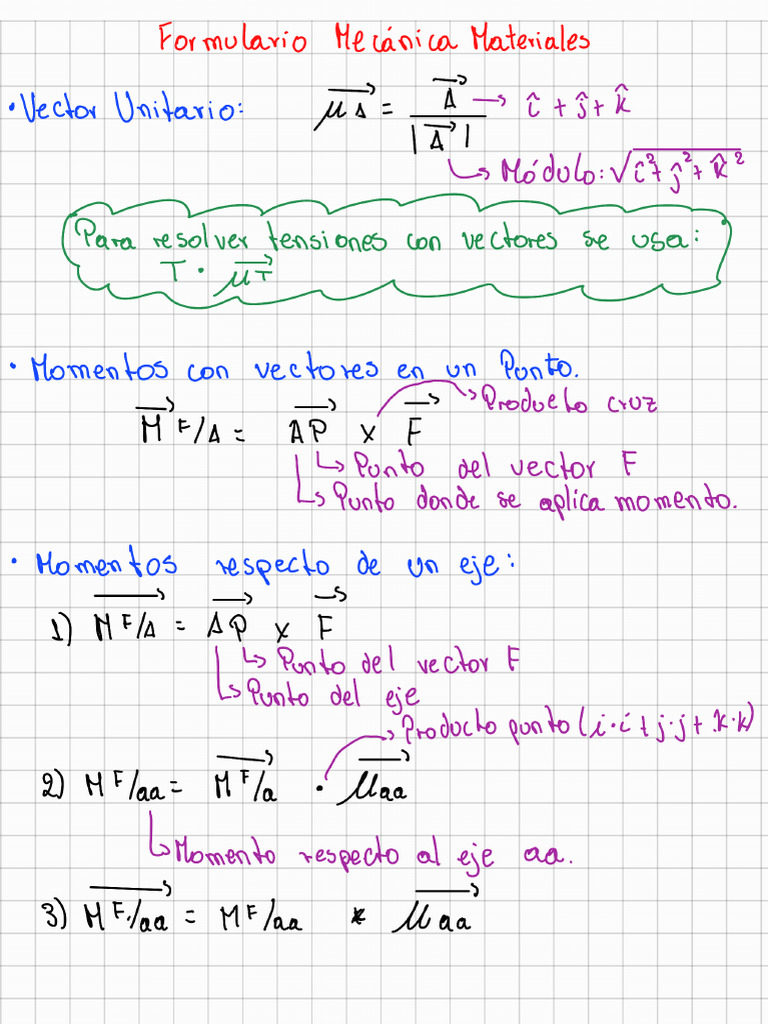 Formulario Mecánica Materiales
• Vector Unitario: μA = A / |A| → î + ĵ + k̂
↳ Módulo: √(î² + ĵ² + k̂²)
Para resolver tensiones con vectores se usa:
T • μT
• Momentos con vectores en un Punto.
→ Producto cruz
M F/A = AP x F
↳ Punto del vector F
↳ Punto donde se aplica momento.
• Momentos respecto de un eje:
1) M F/A = AP x F
↳ Punto del vector F
↳ Punto del eje
→ Producto punto (i·i + j·j + k·k)
2) M F/aa = M F/a • μaa
↳ Momento respecto al eje aa.
3) M F/aa = M F/aa * μaa